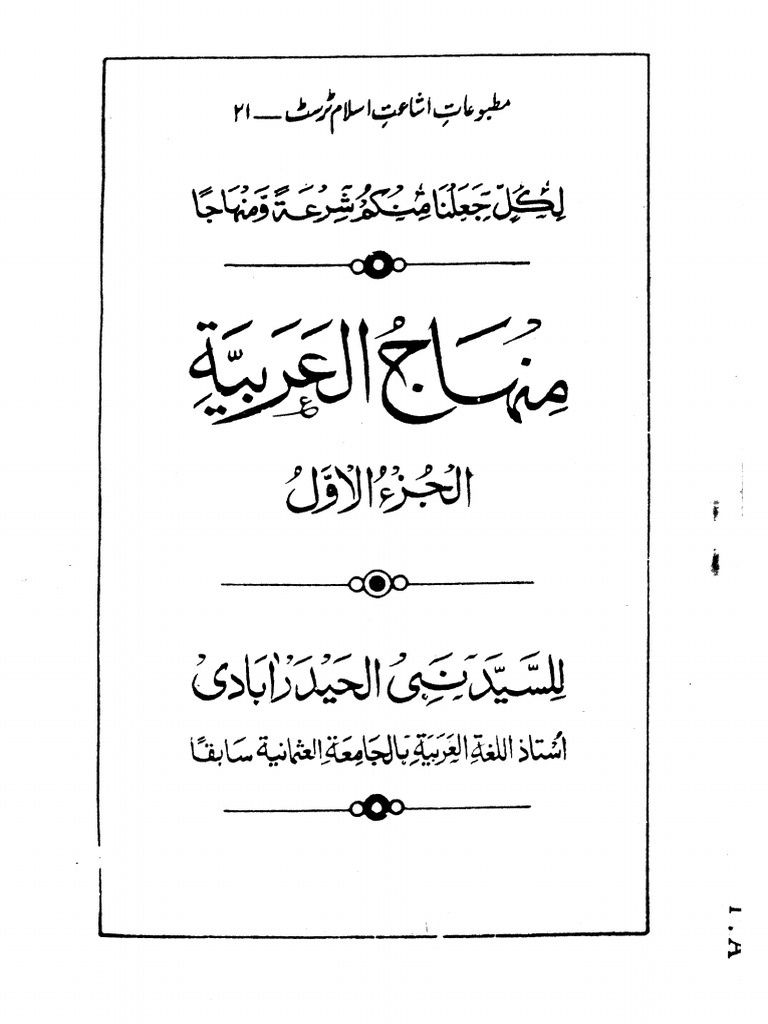 مطبوعاتِ اشاعتِ اسلام ٹرسٹ — ۲۱
لِكُلٍّ جَعَلْنَا مِنْكُمْ شِرْعَةً وَّمِنْهَاجًا
مِنْهَاجُ الْعَرَبِيَّةِ
الْجُزْءُ الْاَوَّلُ
لِلسَّيِّد نَبِىْ الْحَيْدَرْاٰبَادِىْ
اُسْتَاذ اللغةِ العَرَبِيَةِ بِالجَامِعَةِ العثمانية سَابقًا